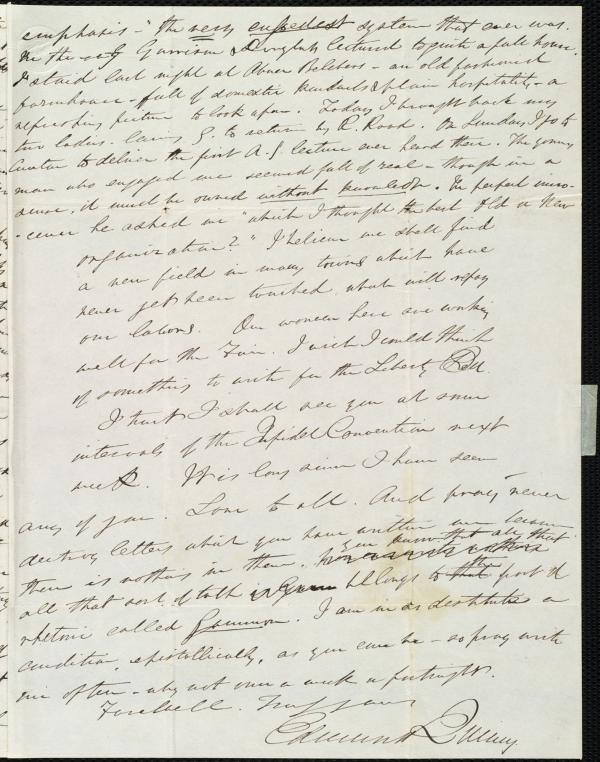 emphasis - "the very cussedest system that ever was.
In the evg Garrison & Douglass lectured to quite a full house.
I staid last night at Abner Belchers - an old fashioned
farmhouse - full of domestic & plain hospitality - a
refreshing picture to look upon. Today I brought back my
two ladies - leaving G. to return by R. Road. On Sunday I go to
Canton to deliver the first A. S. lecture ever heard there. The young
man who engaged me seemed full of zeal - though in a
sense, it must be owned without knowledge. In perfect inno-
-cence he asked me "which I thought the best Old or New
organization?" I believe we shall find
a new field in many towns which have
never yet been touched which will repay
our labors. Our women here are working
well for the Fair. I wish I could think
of something to write for the Liberty Bell.
I trust I shall see you at some
intervals of the Infidel Convention next
week. It is long since I have seen
any of you. Love to all. And pray never
destroy letters which you have written me because
there is nothing in them. you know that all that
all that sort of talk belongs to the part of
rhetoric called Gammon. I am in as destitute a
condition, epistolically, as you can be - so pray write
me often - why not once a week or fortnight.
Farewell. Truly yours
Edmund Quincy